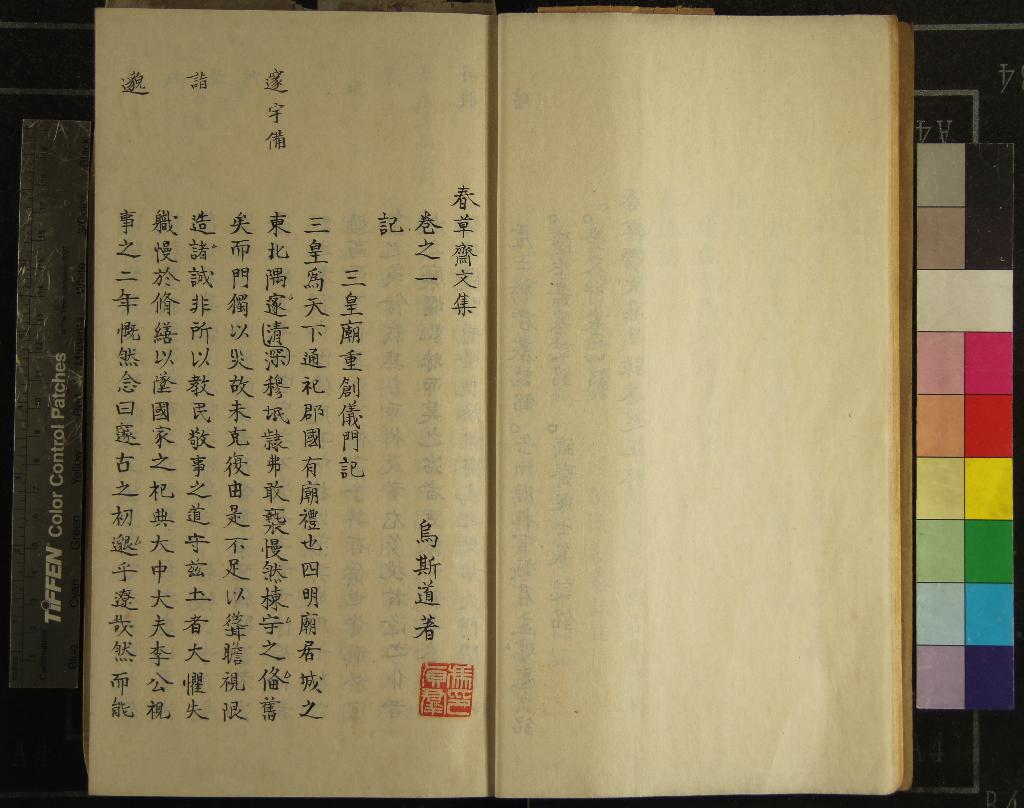 春草齋文集
卷之一
烏斯道著
記
三皇廟重創儀門記
三皇爲天下通祀郡國有廟禮也四明廟居城之
東北隅邃清深穆垊隷弗敢褻慢然棟宇之俻舊
矣而門獨以災故未克復由是不足以聳瞻視限
造諸誠非所以教民敬事之道守兹土者大懼失
職慢於脩繕以墜國家之祀典大中大夫李公視
事之二年慨然念曰邃古之初邈乎遼哉然而能
邃宇備
詣
邈
TIFFEN Color Control Patches
Blue
Cyan
Green
Yellow
Red
Magenta
White
Black
A4
B4